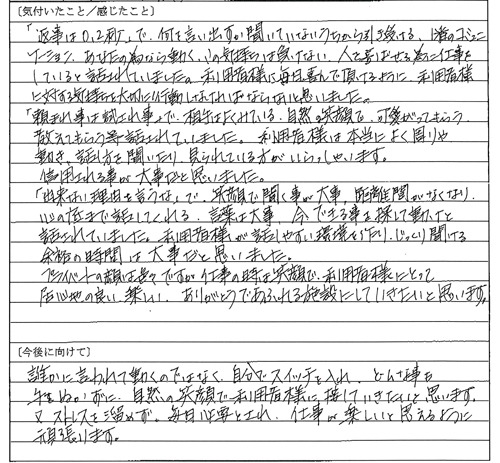 〔気付いたこと／感じたこと〕
「返事は0.2秒」で、何を言い出すか聞いていないうちから引き受ける、1番のコミュニ
ケーション、あなたの為なら動く、の気持ちは負けない、人を喜ばせる為に仕事を
していると話されていました。利用者様に毎日喜んで頂けるように、利用者様
に対する気持ちを大切に行動しなければならないと思いました。
「頼まれ事は試され事」で、相手はよく見ている、自然な笑顔で、可愛がってもらう、
教えてもらう等話されていました。利用者様は本当によく周りや
動き、話し方を聞いたり、見られている方がいらっしゃいます。
信用される事が大事だと思いました。
「出来ない理由を言うな」で、笑顔で聞く事が大事、距離間がなくなり、
心の底まで話してくれる、言葉は大事、今できる事は探して動けと
話されていました。利用者様が話しやすい環境を作り、じっくり聞ける
余裕の時間は大事だと思いました。
プライベートの顔は色々ですが仕事の時は笑顔で、利用者様にとって
居心地の良い、楽しい、ありがとうであふれる施設にしていきたいと思います。
〔今後に向けて〕
誰かに言われて動くのではなく、自分でスイッチを入れ、どんな事も
手をぬかずに、自然の笑顔で利用者様に接していきたいと思います。
又、ストレスを溜めず、毎日心要とされ、仕事が楽しいと思えるように
頑張ります。